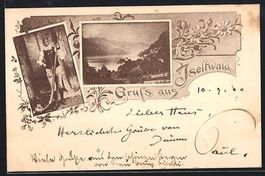 Gruß aus Iseltwald
10.9.00
Lieber Hans
Herzlichste Grüße von
Deinem
Paul.
Viele Grüße aus dem schönen